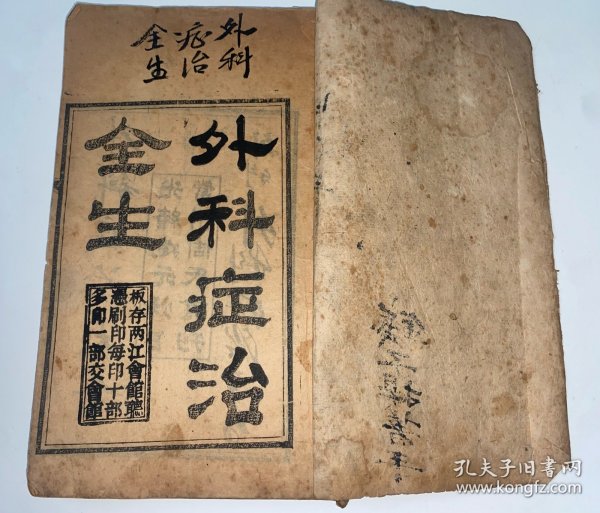 外科
症治
全生
外科症治
全生
板存两江會館聽
慿刷印每印十部
多印一部交會館
孔夫子旧书网
www.kongfz.com